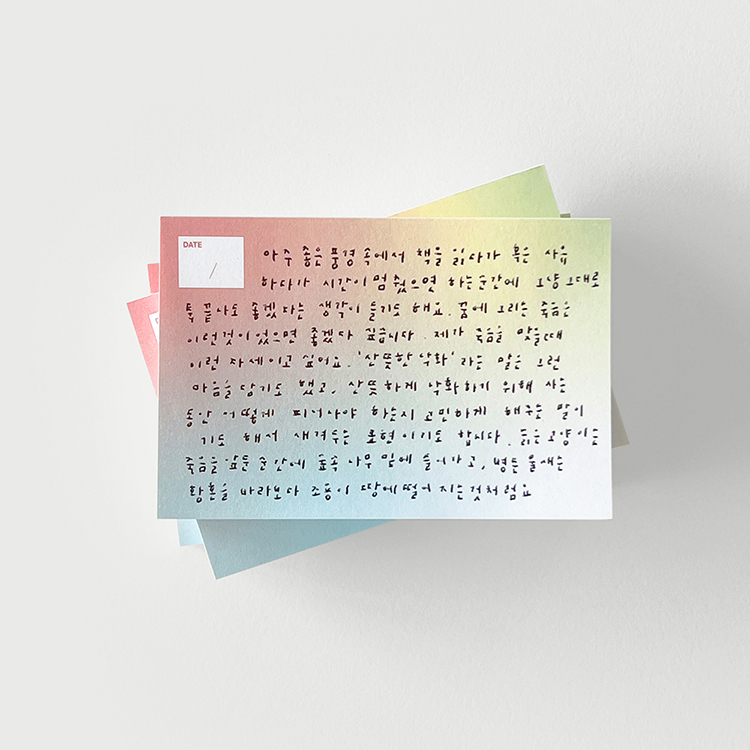 DATE
/
아주 좋은 풍경 속에서 책을 읽다가 혹은 사유
하다가 시간이 멈췄으면 하는순간에 그냥 그대로
툭 끝나도 좋겠다는 생각이 들기도 해요. 꿈에 그리는 죽음은
이런것이 있으면 좋겠다 싶습니다. 제가 죽음을 맞을때
이런 자세이고 싶어요. '산뜻한 낙화' 라는 말은 그런
마음을 담기도 했고, 산뜻하게 낙화하기 위해 사는
동안 어떻게 피어나야 하는지 고민하게 해주는 말이
기도 해서 새겨두는 표현이기도 합니다. 늙은 고양이는
죽음을 앞둔 순간에 숲속 나무 밑에 들어가고, 병든 물새는
황혼을 바라보다 조용히 땅에 떨어지는것처럼요